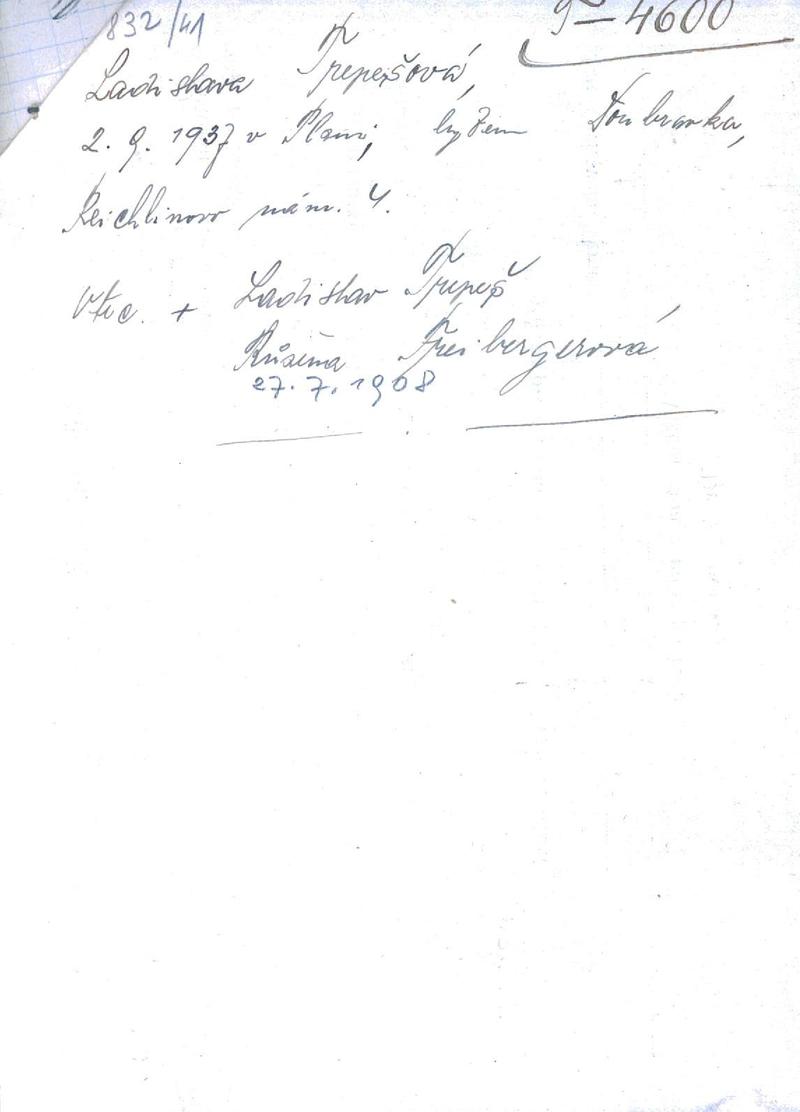 832/41
T-4600
Ladislava Trepešová,
2. 9. 1937 v Plani, bytem Doubravka,
Reichlinovo nám. 4.
Otec. + Ladislav Trepeš
Růžena Freibergerová
27. 7. 1908